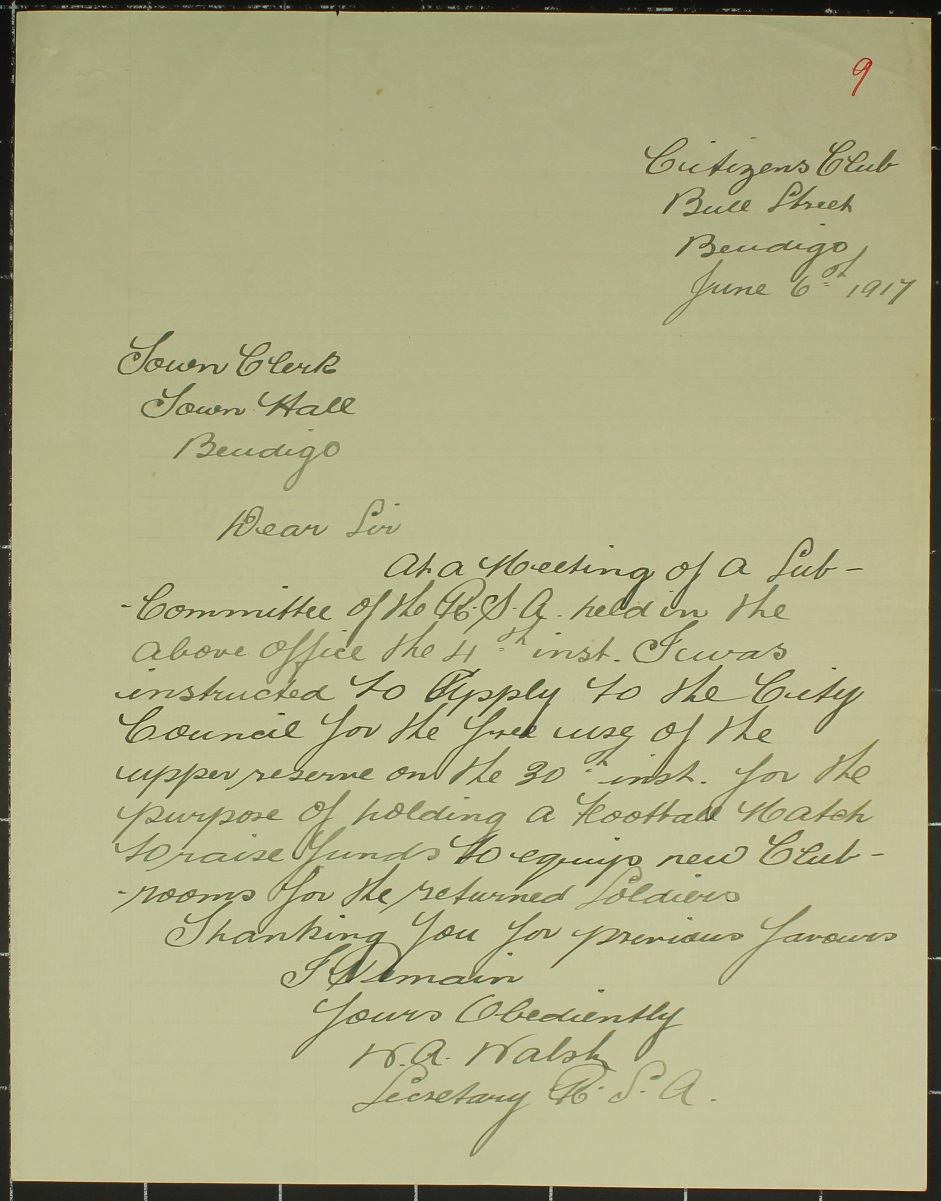 9
Citizens Club
Bull Street
Bendigo
June 6th 1917
Town Clerk
Town Hall
Bendigo
Dear Sir
At a Meeting of a Sub-
-Committee of the R.S.A. held in the
above office the 4th inst. I was
instructed to Apply to the City
Council for the free use of the
upper reserve on the 30th inst. for the
purpose of holding a Football Match
to raise funds to equip new Club-
-rooms for the returned Soldiers
Thanking you for previous favours
I Remain
Yours Obediently
W.A. Walsh
Secretary R.S.A.